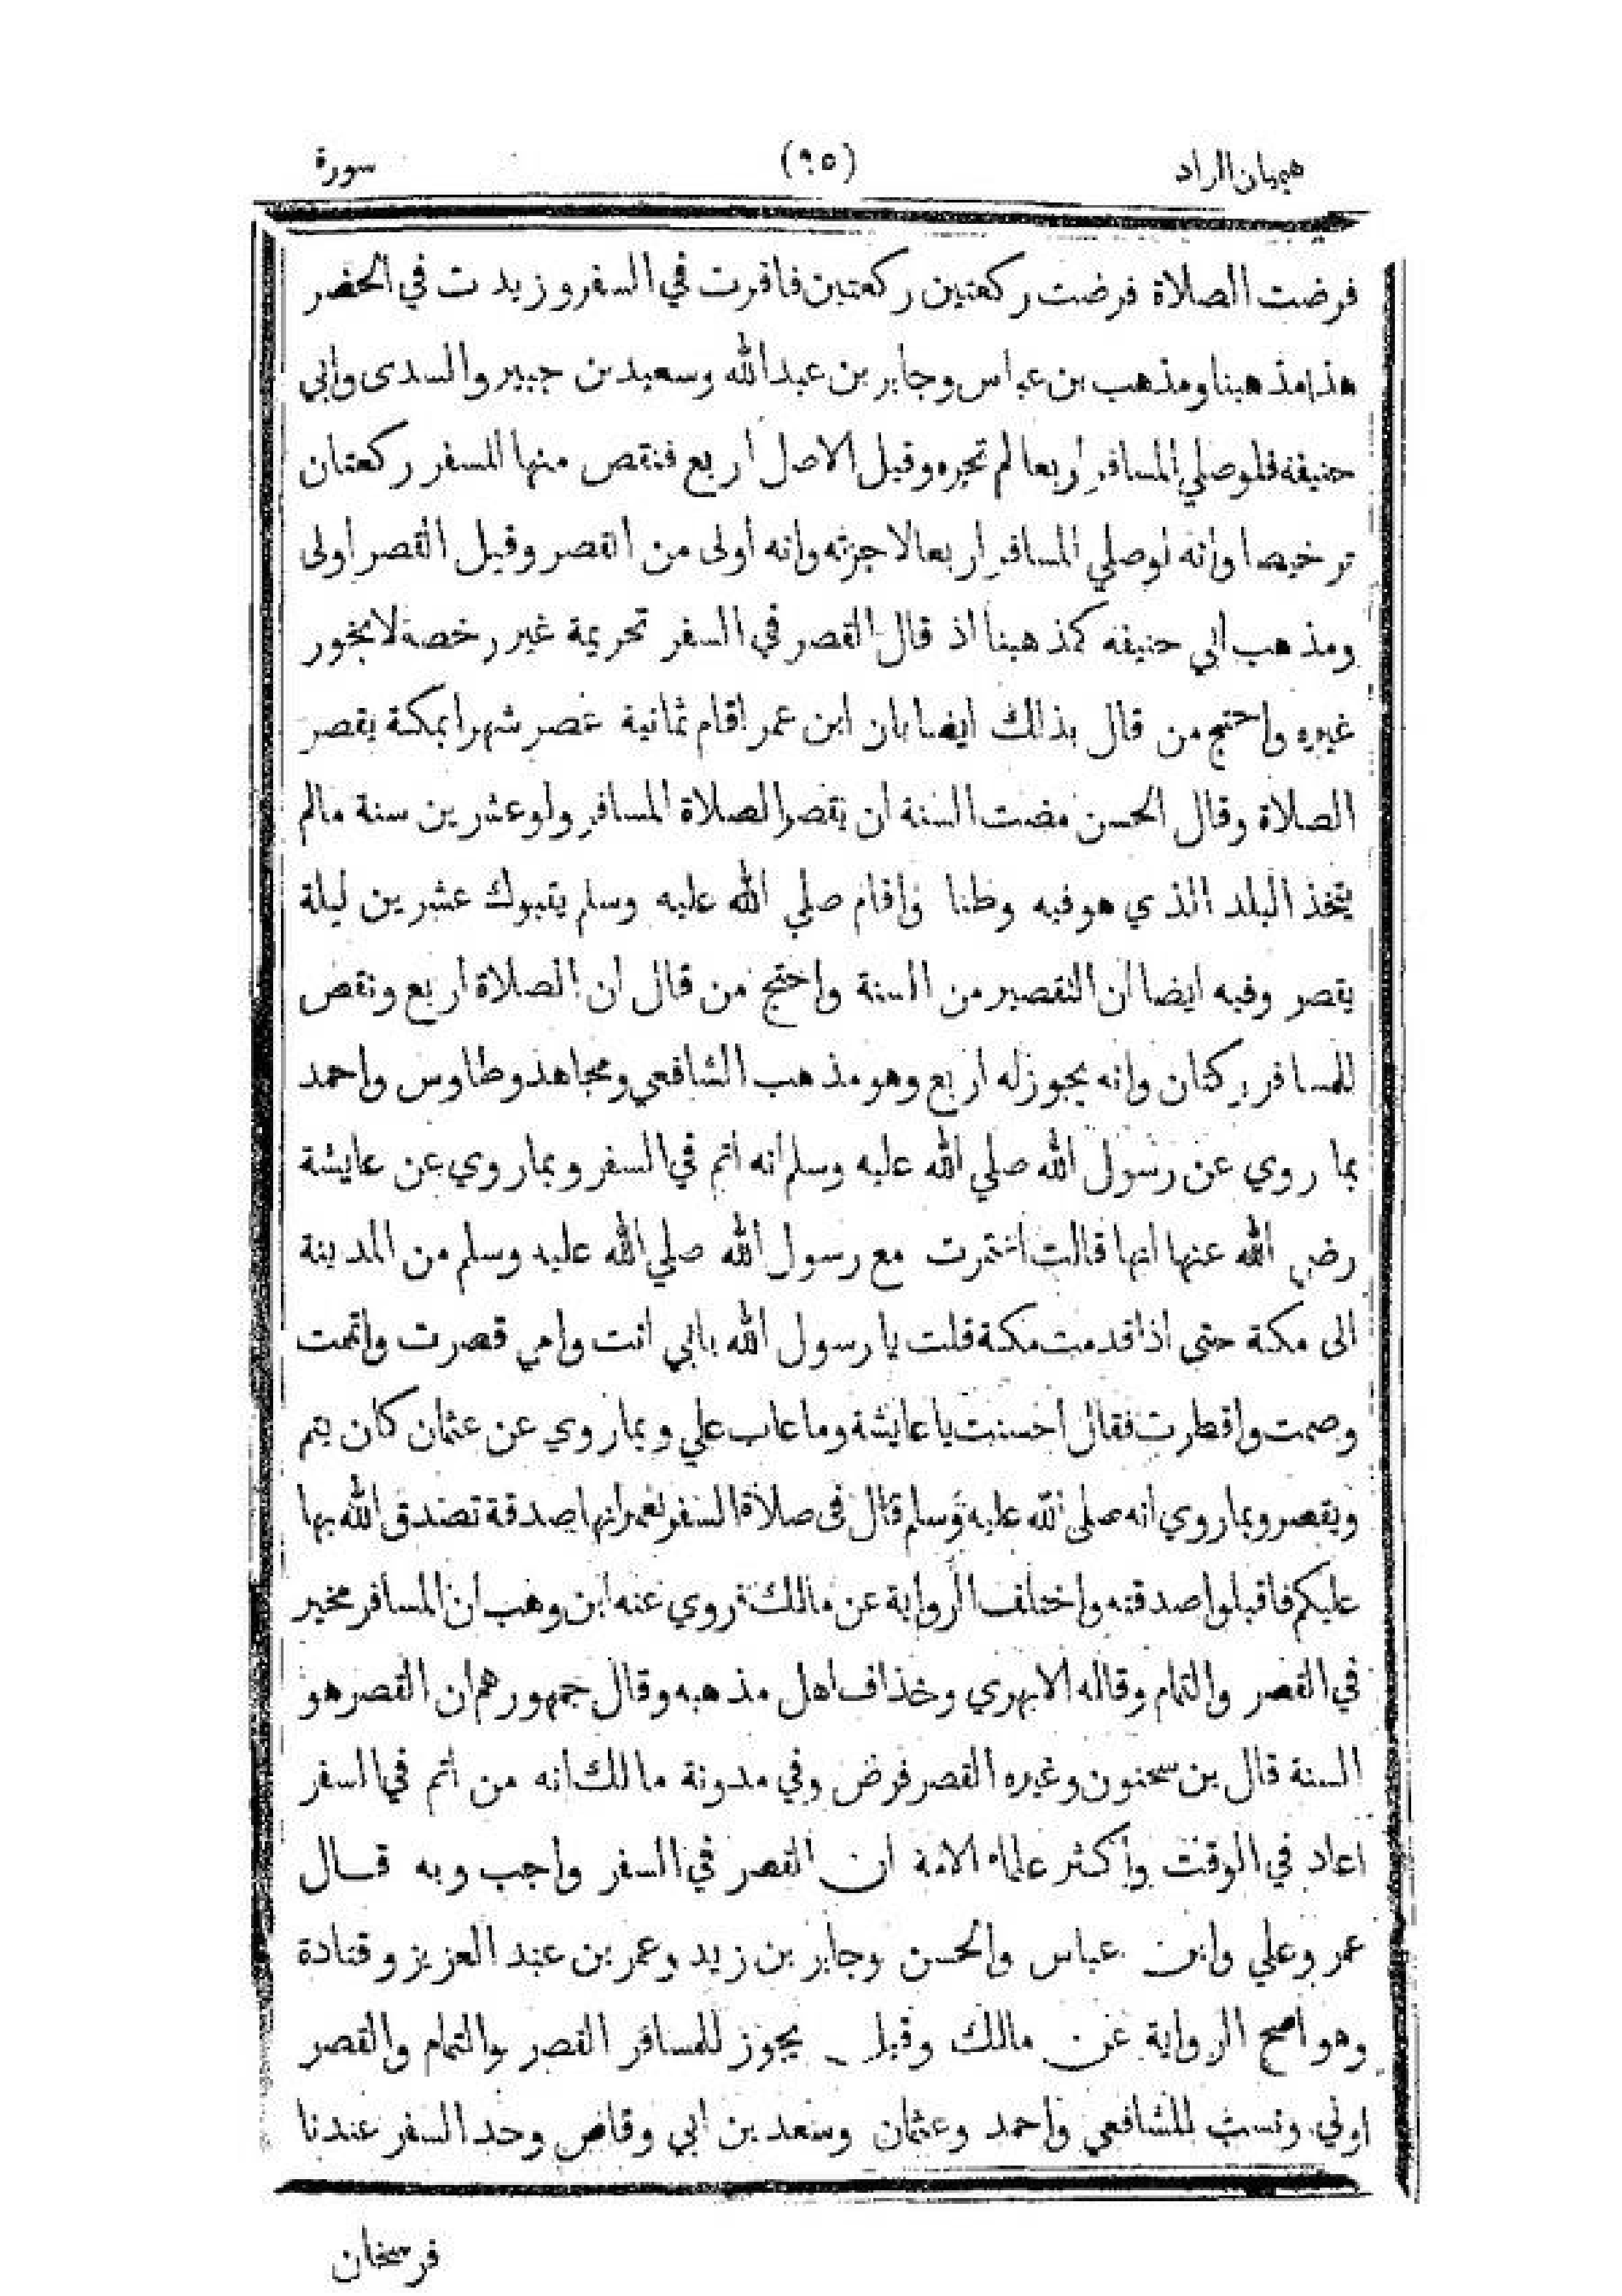 هميان الزاد (٩٥) سورة
فرضت الصلاة فرضت ركعتين ركعتين فاقرت في السفر وزيدت في الحضر
هذا مذهبنا ومذهب بن عباس وجابر بن عبد الله وسعيد بن جبير والسدى وابي
حنيفه فلو صلي المسافر اربعا لم تجزه وقيل الاصل اربع فنقص منها المسفر ركعتان
ترخيصا وانه لو صلي المسافر اربعا لاجزته وانه أولى من القصر وقيل القصر اولى
ومذهب ابي حنيفه كمذهبنا اذ قال القصر في السفر تحريمة غير رخصة لا يجوز
غيره واحتج من قال بذلك ايضا بان ابن عمر اقام ثمانية عصر شهرا بمكة يقصر
الصلاة وقال الحسن مضت السنة ان يقصر الصلاة المسافر ولو عشرين سنة مالم
يتخذ البلد الذي هو فيه وطنا واقام صلي الله عليه وسلم يتبوك عشرين ليلة
يقصر وفيه ايضا ان التقصير من السنة واحتج من قال ان الصلاة اربع ونقص
للمسافر ركتان وانه يجوز له اربع وهو مذهب الشافعي ومجاهد وطاوس واحمد
بما روي عن رسول الله صلي الله عليه وسلم انه اتم في السفر وبما روي عن عايشة
رضي الله عنها انها قالت اعتمرت مع رسول الله صلي الله عليه وسلم من المدينة
الى مكة حتى اذا قدمت مكة قلت يا رسول الله بابي انت وامي قصرت واتممت
وصمت وافطرت فقال احسنت يا عايشة وما عاب علي وبما روي عن عثمان كان يتم
ويقصر وبما روي انه صلى الله عليه وسلم قال فى صلاة السفر لعمر انها صدقة تصدق الله بها
عليكم فاقبلوا صدقته واختلف الرواية عن مالك فروي عنه ابن وهب ان المسافر مخير
في القصر والتمام وقاله الابهري وخذاف اهل مذهبه وقال جمهورهم ان القصر هو
السنة قال بن سحنون وغيره القصر فرض وفي مدونة مالك انه من اتم في السفر
اعاد في الوقت وأكثر علماء الامة ان القصر في السفر واجب وبه قال
عمر وعلي وابن عباس والحسن وجابر بن زيد وعمر بن عبد العزيز وقتادة
وهو اصح الرواية عن مالك وقيل يجوز للمسافر القصر والتمام والقصر
اولي ونسب للشافعي واحمد وعثمان وسعد بن ابي وقاص وحد السفر عندنا
فرسخان